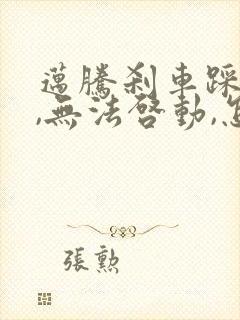 邁騰刹車踩
,無法啓動,怎
張勲